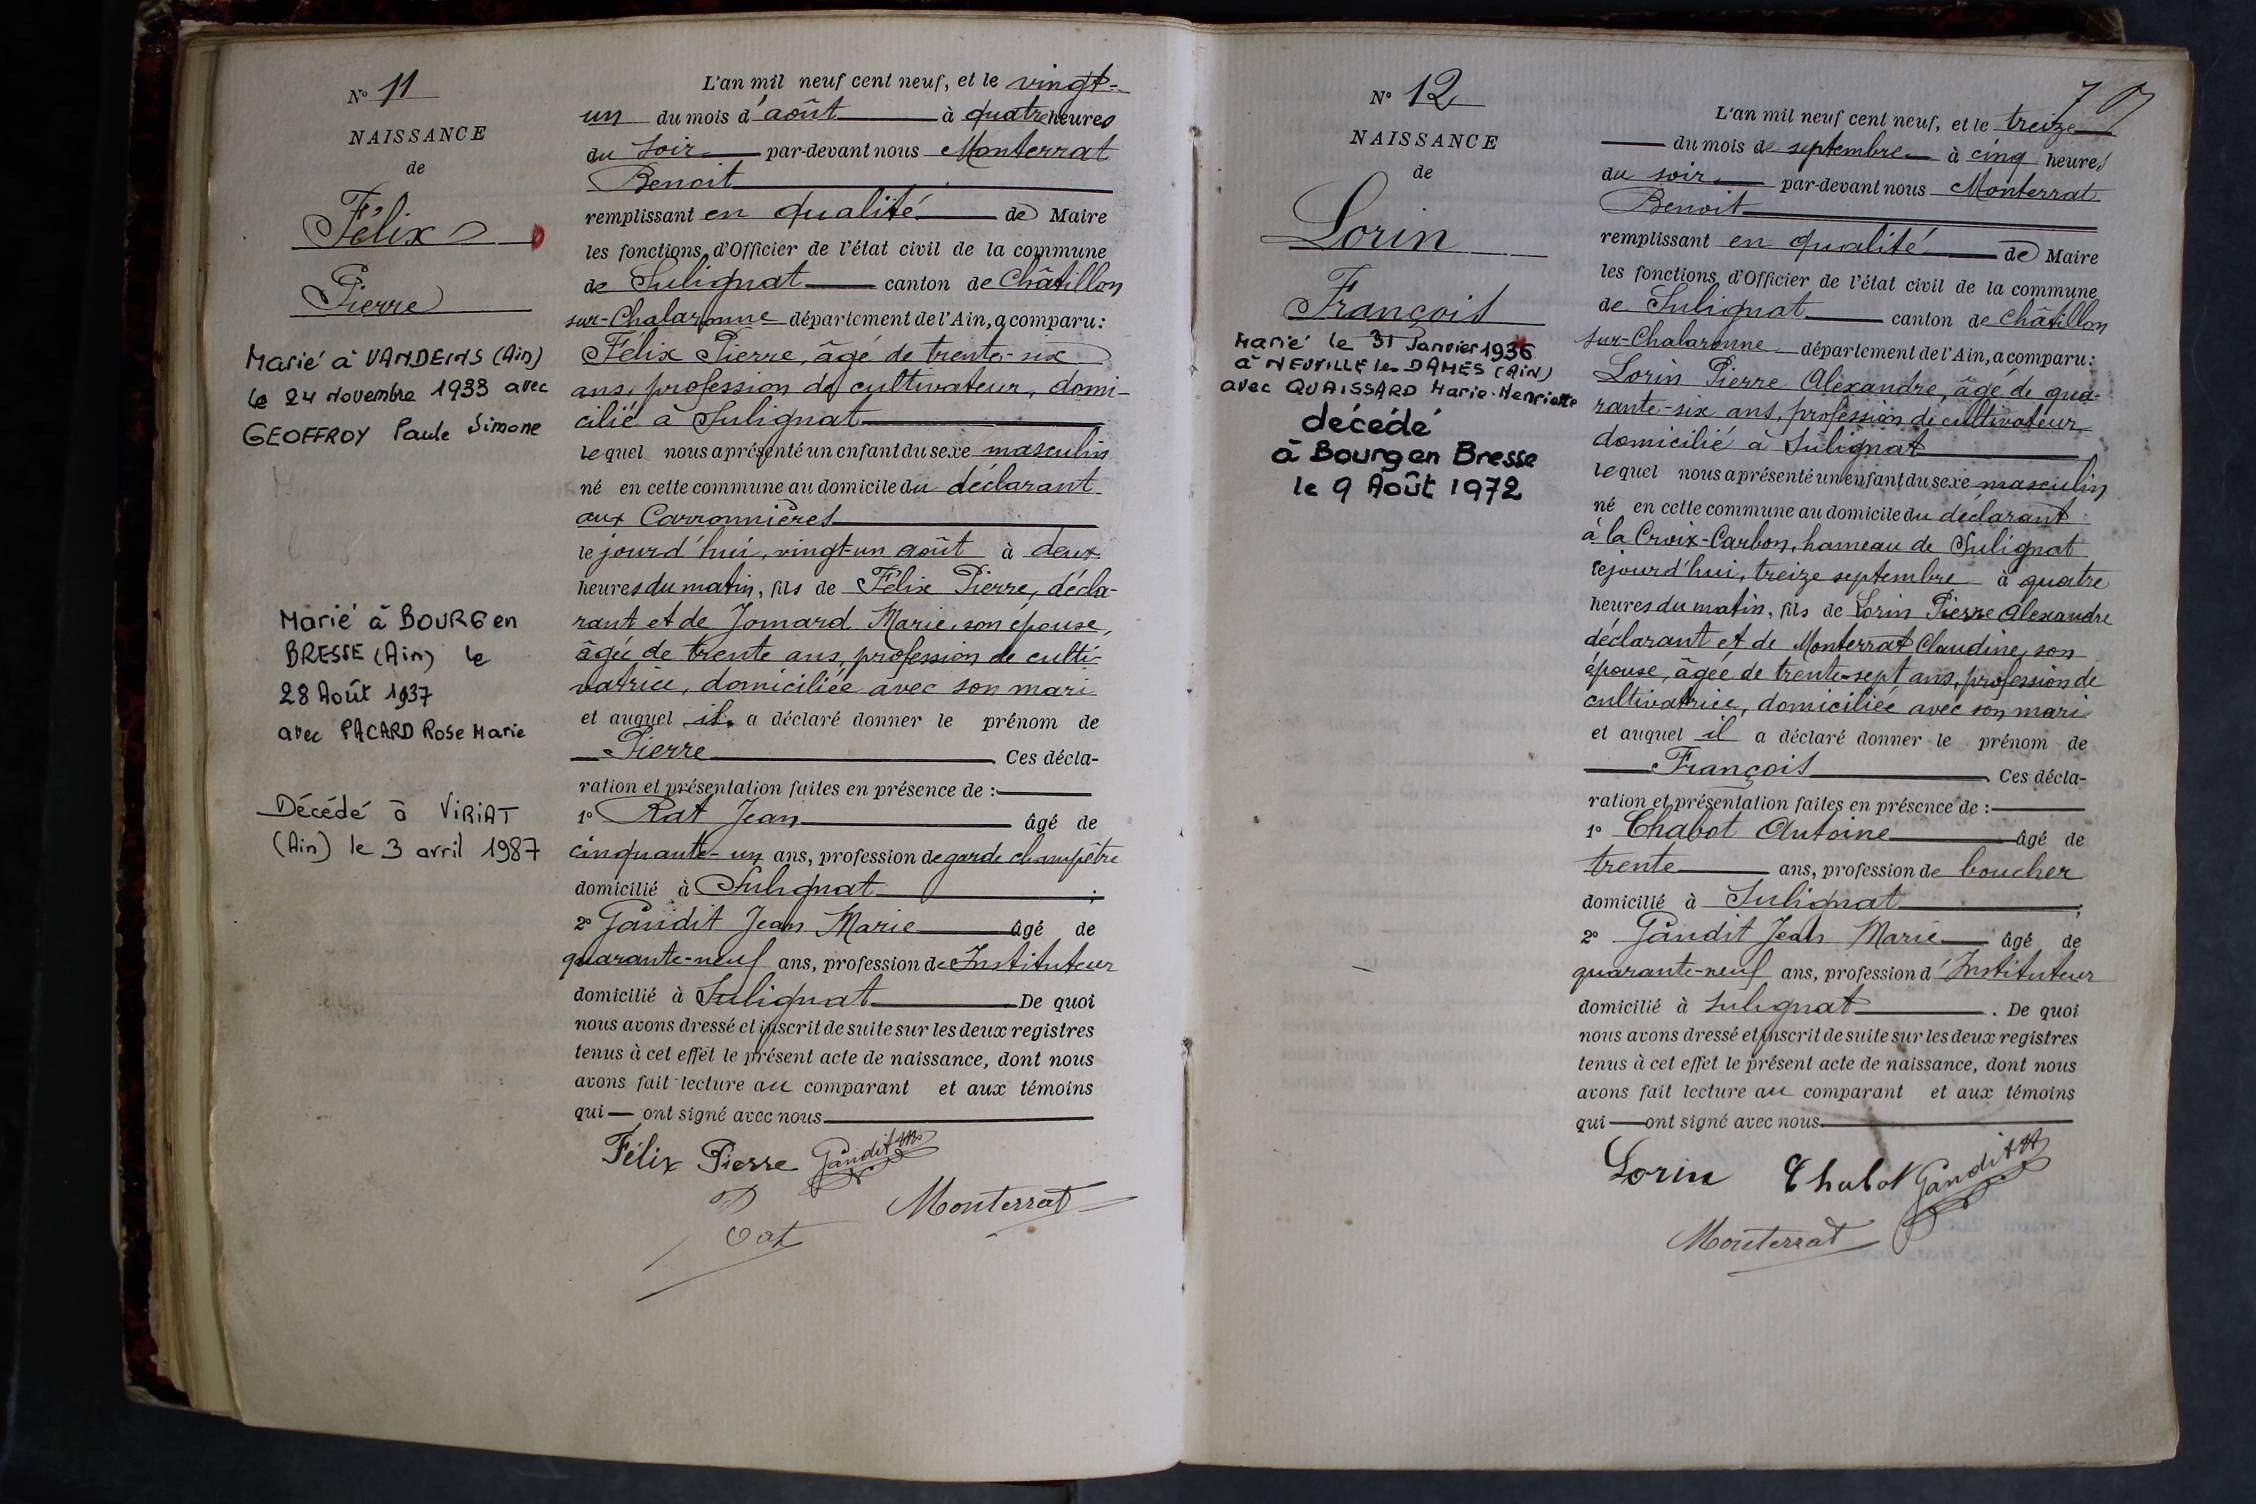 N° 11
NAISSANCE
de
Félix
Pierre
Marié à VANDEINS (Ain)
le 24 novembre 1933 avec
GEOFFROY Paule Simone
Marié à BOURG en
BRESSE (Ain) le
28 Août 1937
avec PACARD Rose Marie
Décédé à VIRIAT
(Ain) le 3 avril 1987
L'an mil neuf cent neuf, et le vingt-
un du mois d'août à quatre heures
du soir par-devant nous Monterrat
Benoit
remplissant en qualité de Maire
les fonctions d'Officier de l'état civil de la commune
de Sulignat canton de Châtillon
sur-Chalaronne département de l'Ain, a comparu :
Félix Pierre, âgé de trente-six
ans, profession de cultivateur, domi-
cilié à Sulignat
lequel nous a présenté un enfant du sexe masculin
né en cette commune au domicile du déclarant
aux Carronnières
le jourd'hui, vingt-un août à deux
heures du matin, fils de Félix Pierre, décla-
rant et de Jomard Marie, son épouse,
âgée de trente ans, profession de culti-
vatrice, domiciliée avec son mari
et auquel il a déclaré donner le prénom de
Pierre Ces décla-
ration et présentation faites en présence de :
1° Rat Jean âgé de
cinquante-un ans, profession de garde champêtre
domicilié à Sulignat ;
2° Gandit Jean Marie âgé de
quarante-neuf ans, profession de Instituteur
domicilié à Sulignat De quoi
nous avons dressé et inscrit de suite sur les deux registres
tenus à cet effet le présent acte de naissance, dont nous
avons fait lecture au comparant et aux témoins
qui ont signé avec nous
Félix Pierre Gandit JM
Rat Monterrat
N° 12
NAISSANCE
de
Lorin
François
Marié le 31 Janvier 1936
à NEUVILLE les DAMES (AIN)
avec QUAISSARD Marie-Henriette
décédé
à Bourg en Bresse
le 9 Août 1972
L'an mil neuf cent neuf, et le treize
du mois de septembre à cinq heures
du soir par-devant nous Monterrat
Benoit
remplissant en qualité de Maire
les fonctions d'Officier de l'état civil de la commune
de Sulignat canton de Châtillon
sur-Chalaronne département de l'Ain, a comparu :
Lorin Pierre Alexandre, âgé de qua-
rante-six ans, profession de cultivateur
domicilié à Sulignat
lequel nous a présenté un enfant du sexe masculin
né en cette commune au domicile du déclarant
à la Croix-Carbon, hameau de Sulignat
le jourd'hui, treize septembre à quatre
heures du matin, fils de Lorin Pierre Alexandre
déclarant et de Monterrat Claudine, son
épouse, âgée de trente-sept ans, profession de
cultivatrice, domiciliée avec son mari
et auquel il a déclaré donner le prénom de
François Ces décla-
ration et présentation faites en présence de :
1° Chabot Antoine âgé de
trente ans, profession de boucher
domicilié à Sulignat ;
2° Gandit Jean Marie âgé de
quarante-neuf ans, profession d'Instituteur
domicilié à Sulignat . De quoi
nous avons dressé et inscrit de suite sur les deux registres
tenus à cet effet le présent acte de naissance, dont nous
avons fait lecture au comparant et aux témoins
qui ont signé avec nous
Lorin Chabot Gandit JM
Monterrat